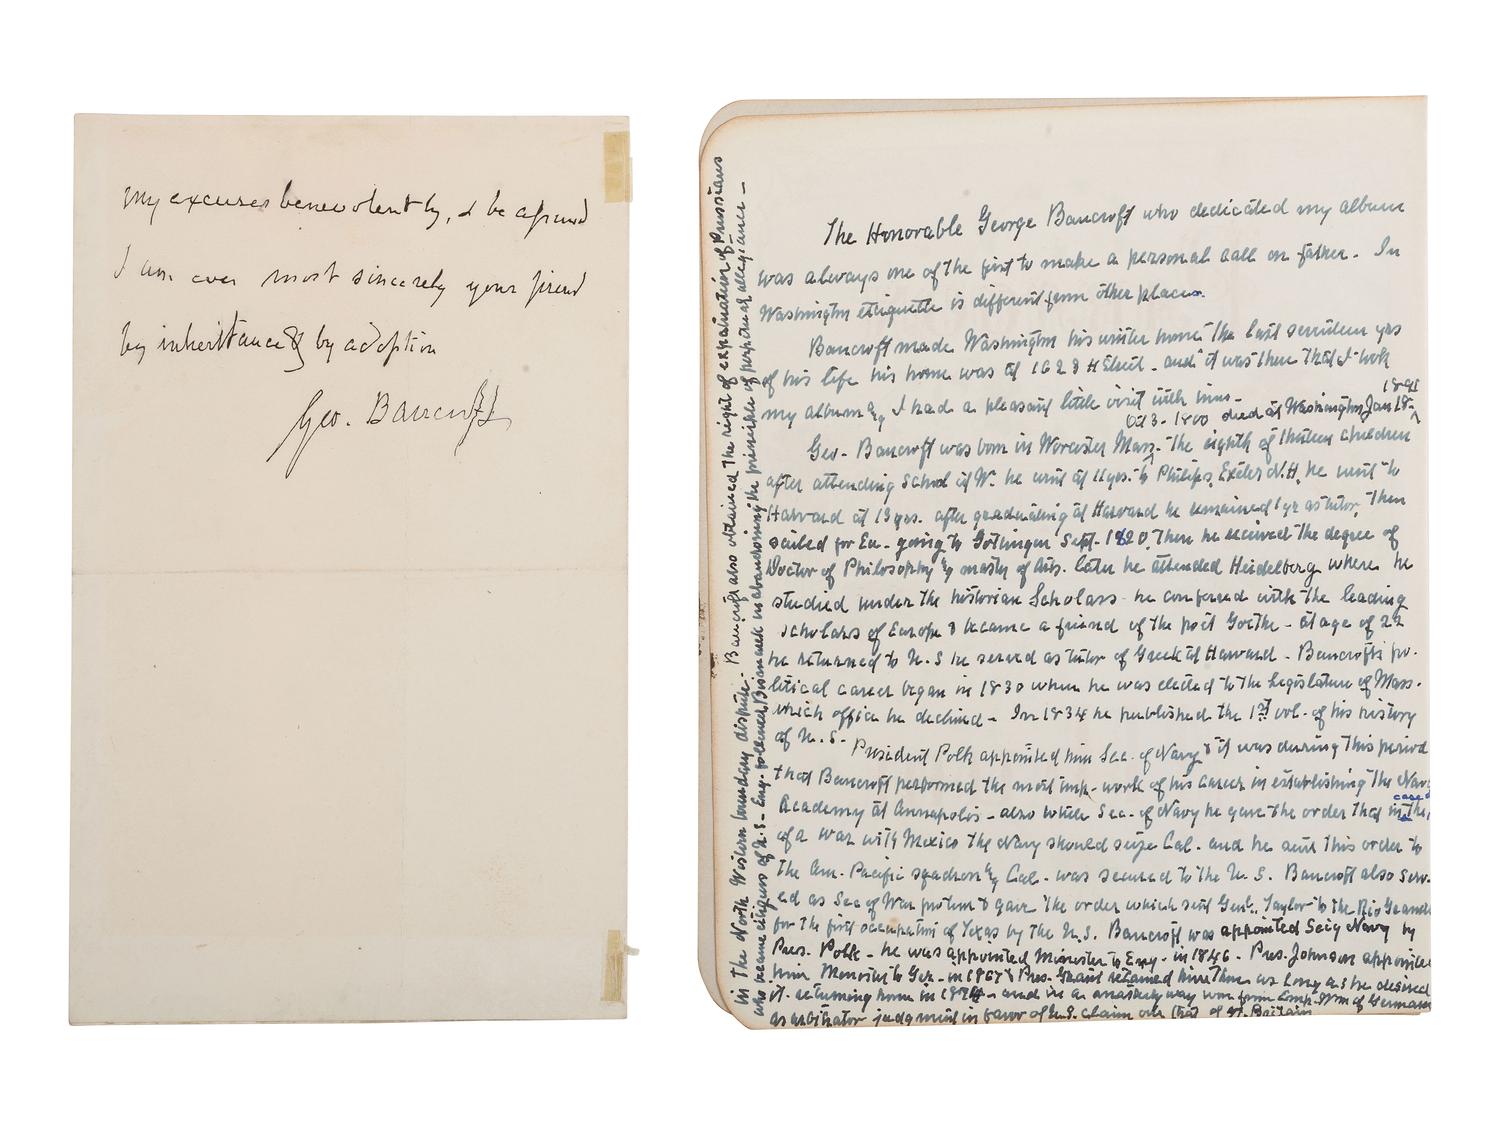 my excuses benevolently, & be assured
I am ever most sincerely your friend
by inheritance & by adoption
Geo. Bancroft
The Honorable George Bancroft who dedicated my album
was always one of the first to make a personal call on father. In
Washington etiquette is different from other places.
Bancroft made Washington his winter home the last seventeen yrs
of his life his home was at 1623 H Street. and it was there that I took
my album & I had a pleasant little visit with him-
1891
Oct 3- 1800 died at Washington Jan 18-
Geo- Bancroft was born in Worcester Mass. The eighth of thirteen children
after attending School at W. he went at 11 yrs. to Philips, Exeter N.H, he went to
Harvard at 13 yrs. after graduating at Harvard he remained 1 yr as tutor, Then
sailed for Eu- going to Gottingen Sept. 1820, Then he received the degree of
Doctor of Philosophy & master of Arts. later he attended Heidelberg where he
studied under the historian Scholass- he confered with the leading
scholars of Europe & became a friend of the poet Goethe- at age of 22
he returned to U.S he served as tutor of Greek at Harvard- Bancroft's po-
litical career began in 1830 when he was elected to the Legislature of Mass.
which office he declined- In 1834 he published the 1st vol. of his history
of U.S.-
President Polk appointed him Sec. of Navy & it was during this period
that Bancroft performed the most imp- work of his career in establishing the Navy
case
Academy at Annapolis- also while Sec- of Navy he gave the order that in the
of a war with Mexico the Navy should seize Cal- and he sent this order to
the Am- Pacific squadron & Cal- was secured to the U.S. Bancroft also serv-
ed as Sec of War protem & gave the order which sent Genl. Taylor to the Rio Grande
for the first occupation of Texas by the U.S. Bancroft was appointed Sec'y Navy by
Pres. Polk- he was appointed Minister to Eng- in 1846- Pres. Johnson appointed
him Minister to Ger- in 1867 & Pres- Grant retained him there as long as he desired
it- returning home in 1874- and in a masterly way won from Emp- Wm of Germany
as arbitrator judgment in favor of U.S. claim over that of Gt. Britain
in the North Western boundary dispute.- Bancroft also obtained the right of expatriation of Prussians
who became citizens of U.S- Eng- followed Bismarck in abandoning the principle of perpetual allegiance-